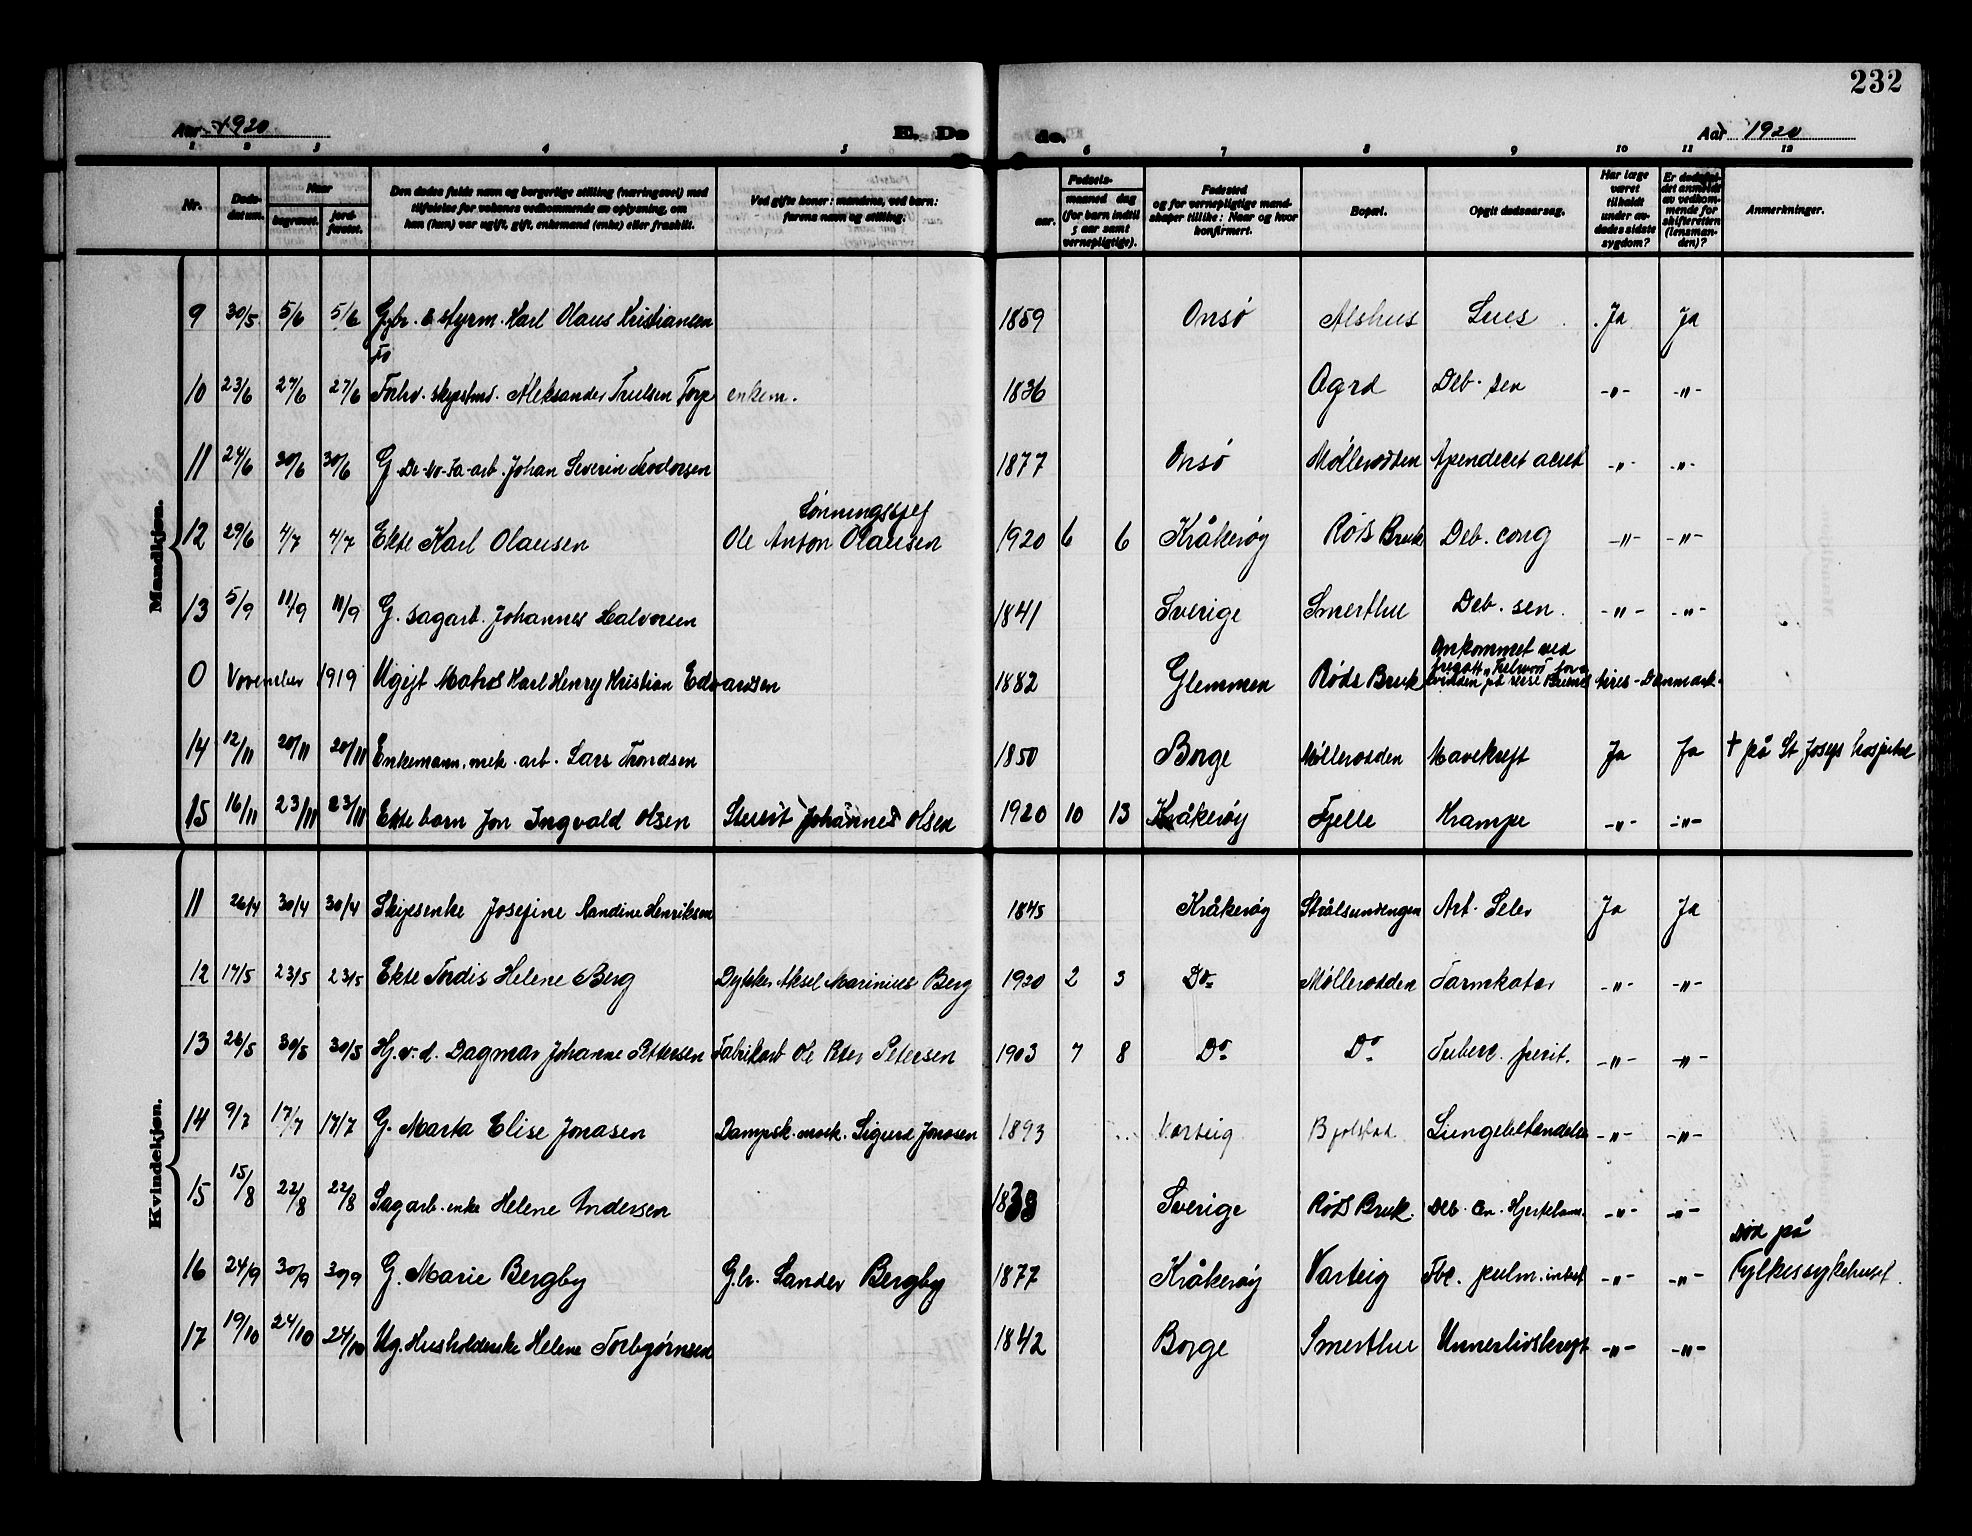 232
Aar 1920
E. Dø
de.
Aar 1920
1 2 3 4 5 6 7 8 9 10 11 12
Nr.
Døds-
datum.
Naar
begravet.
jord-
fæstet.
Den dødes fulde navn og borgerlige stilling (næringsvei) med
tilføielse for voksnes vedkommende av oplysning, om
han (hun) var ugift, gift, enkemand (enke) eller fraskilt.
Ved gifte koner: mandens, ved barn:
farens navn og stilling.
Fødsels-
aar.
maaned dag
(for barn indtil
5 aar samt
vernepligtige).
Fødested
og for vernepligtige mand-
skaper tillike: Naar og hvor
konfirmert.
Bopæl.
Opgit dødsaarsag.
Har læge
været
tilkaldt
under av-
dødes sidste
sygdom?
Er dødsfal-
det anmeldt
av vedkom-
mende for
skifteretten
(lensman-
den)?
Anmerkninger.
Mandkjøn.
9 30/5 5/6 5/6 Karl Olaus Kristiansen 1859 Onsø Alshus Lues Ja Ja
10 23/6 27/6 27/6 Aleksander Trulsen Torp enkem. 1836 Deb. sen -"- -"-
11 24/6 30/6 30/6 G Johan Severin Teodorsen 1877 Onsø Møllerodden -"- -"-
12 29/6 4/7 4/7 Ekte Karl Olausen Ole Anton Olausen 1920 6 6 Kråkerøy Røds Bruk Deb. cong -"- -"-
13 5/9 11/9 11/9 G. sagarb. Johannes Halvorsen 1841 Sverige Smerthu Deb. sen. -"- -"-
0 November 1919 Ugift Matros Karl Henry Kristian Edvardsen 1882 Glemmen Røds Bruk Omkommet ved
Danmark.
14 12/11 20/11 20/11 Enkemann. mek. arb. Lars Trondsen 1850 Borge Møllerodden Mavekreft Ja Ja † på St Josefs hospital
15 16/11 23/11 23/11 Ekte barn Jon Ingvald Olsen Johannes Olsen 1920 10 13 Kråkerøy Fjelle Krampe -"- -"-
Kvindekjøn.
11 26/4 30/4 30/4 Josefine Randine Henriksen 1845 Kråkerøy Art. Ja Ja
12 17/5 23/5 23/5 Ekte Tordis Helene Berg Dykker Aksel Marinius Berg 1920 2 3 Do Møllerodden Tarmkatar -"- -"-
13 26/5 30/5 30/5 Hj.v.d. Dagmar Johanne Pettersen Fabrikarb Ole Peter Petersen 1903 7 8 Do Do Tuberc. perit. -"- -"-
14 9/7 17/7 17/7 G. Marta Elise Jonasen Sigurd Jonasen 1893 Varteig Bjølstad Lungebetendelse -"- -"-
15 15/8 22/8 22/8 Sagarb. enke Helene Andersen 1838 Sverige Røds Bruk. Deb. -"- -"-
16 24/9 30/9 30/9 G. Marie Bergby Gbr. Sander Bergby 1877 Kråkerøy Varteig Tbc. pulm. intest -"- -"- Død på
Fylkessykehuset.
17 19/10 24/10 24/10 Ug. Helene Torbjørnsen 1842 Borge Smerthu Underlivskreft -"- -"-